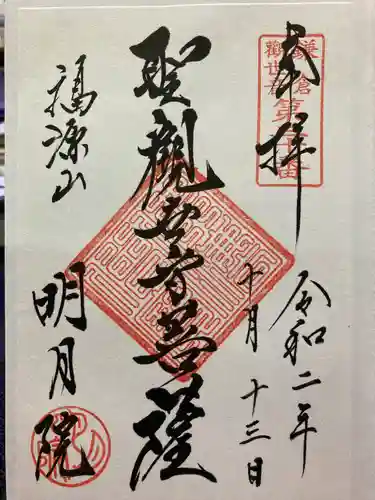 奉拝
鎌倉
觀世音
第三十番
令和二年
十月十三日
聖觀世音菩薩
福源山
明月院